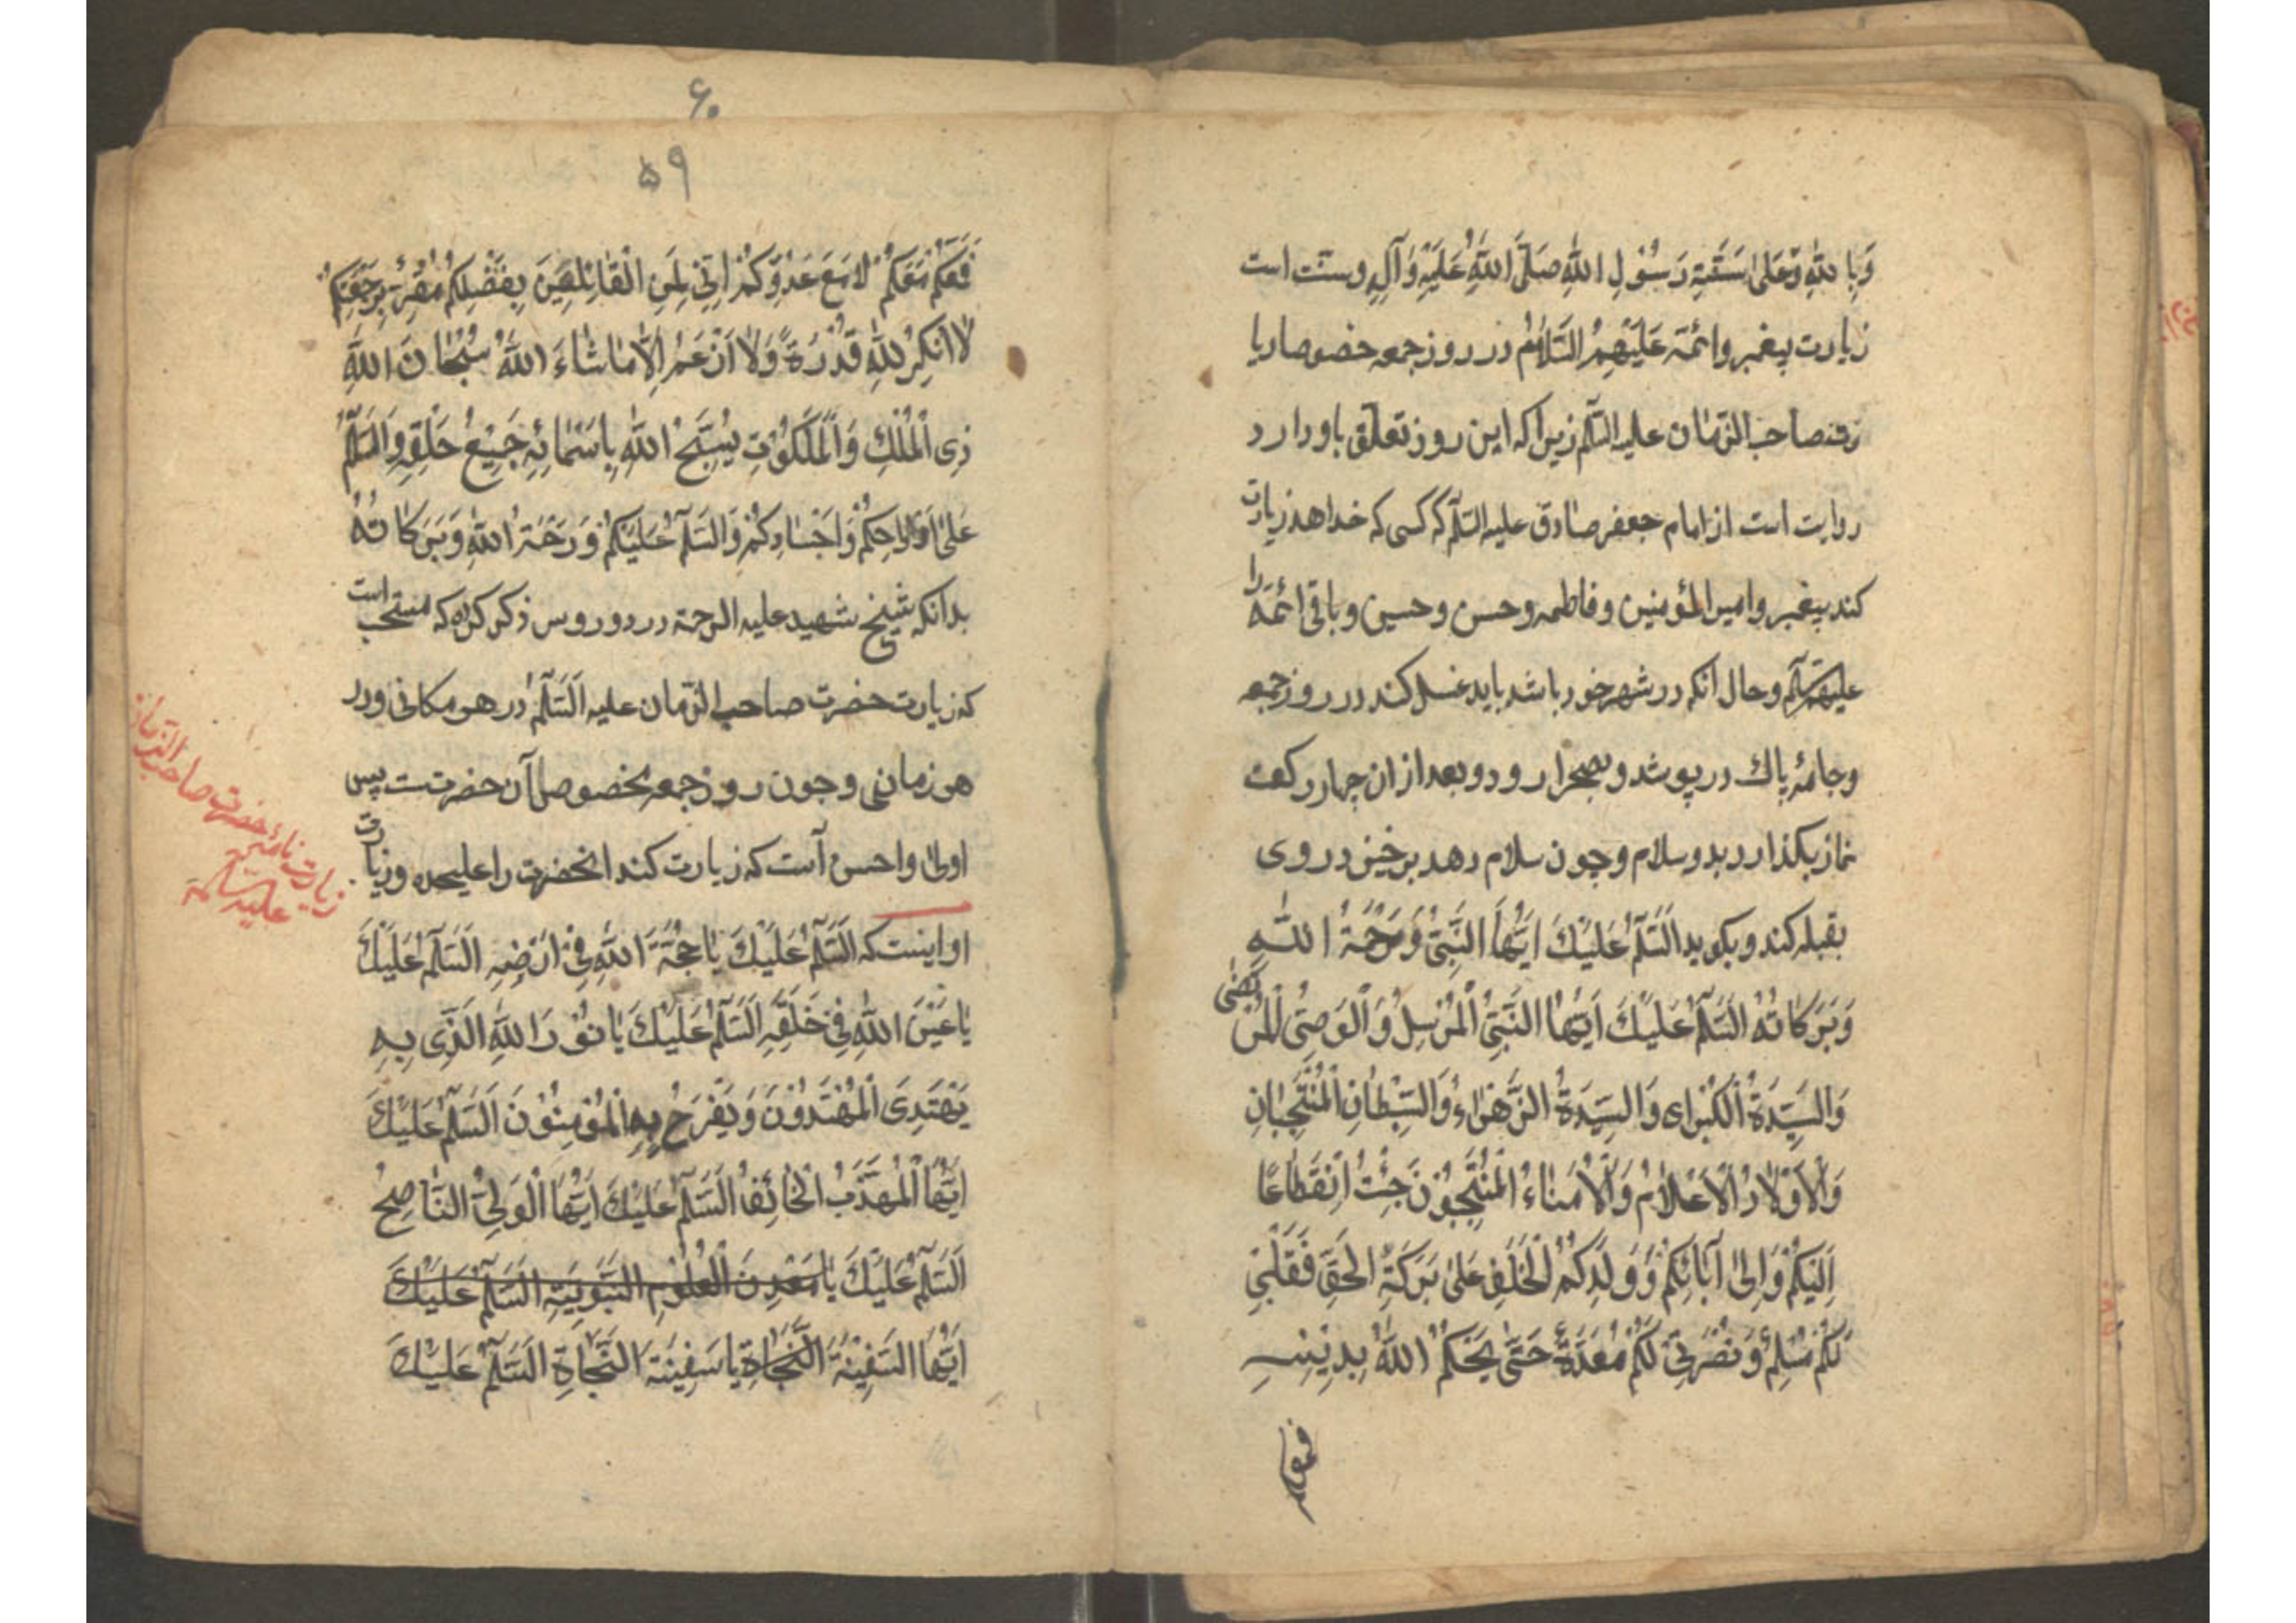 وَبِاللّٰهِ وَعَلىٰ سَنَّةِ رَسُوْلِ اللّٰهِ صَلَّى اللّٰهُ عَلَيْهِ وَآلِهِ وسنّت است
زیارت پیغمبر وائمّة عَلَيْهِمُ السَّلاٰمُ در روز جمعه خصوصا زیا
رت صاحب الزّمان علیه السّلم زیرا که این روز تعلّق باو دارد
روایت است از امام جعفر صادق علیه السّلم که کسی که خداهد زیارت
کند پیغمبر وامیر المؤمنین وفاطمه وحسن وحسین وباقی ائمّه را
علیهم السّلم وحال انکه در شهر خود باشد باید غسل کند در روز جمعه
وجامهٔ پاك در پوشد وبصحرا رود وبعد از ان چهار رکعت
نماز بکذارد بدو سلام وچون سلام دهد برخیزد و روی
بقبله کند وبکوید اَلسَّلٰمُ عَلَيْكَ اَيُّهَا النَّبِيُّ وَرَحْمَةُ اللّٰهِ
وَبَرَكَاتُهُ اَلسَّلٰمُ عَلَيْكَ اَيُّهَا النَّبِيُّ الْمُرْسِلُ وَالْوَصِيُّ الْمُرْتَضٰى
وَالسَّيِّدَةُ الْكُبْرٰى وَالسَّيِّدَةُ الزَّهْرٰاءُ وَالسِّبْطٰانِ الْمُنْتَجِبٰانِ
وَالْاَوْلاٰدُ الْاَعْلاٰمُ وَالْاُمَنٰاءُ الْمُنْتَجَبُوْنَ جِئْتُ اِنْقِطٰاعًا
اِلَيْكُمْ وَاِلىٰ آبٰائِكُمْ وَوَلَدِكُمْ الْخَلَفِ عَلىٰ بَرَكَةِ الْحَقِّ فَقَلْبِيْ
لَكُمْ مُسْلِمٌ وَنُصْرَتِيْ لَكُمْ مُعَدَّةٌ حَتّٰى يَحْكُمَ اللّٰهُ بِدِيْنِهِ
فمعكم
۶۰
۵۹
فَمَعَكُمْ مَعَكُمْ لاٰمَعَ عَدُوِّكُمْ اِنِّيْ لَمِنَ الْقٰائِلِيْنَ بِفَضْلِكُمْ مُقِرٌّ بِرَجْعَتِكُمْ
لاٰ اُنْكِرُ لِلّٰهِ قُدْرَةً وَلاٰ اَزْعَمُ اِلاّٰ مٰاشٰاءَ اللّٰهُ سُبْحٰانَ اللّٰهِ
ذِى الْمُلْكِ وَالْمَلَكُوْتِ يُسَبِّحُ اللّٰهَ بِاَسْمٰائِهِ جَمِيْعُ خَلْقِهِ وَالسَّلٰمُ
عَلىٰ اَرْوٰاحِكُمْ وَاَجْسٰادِكُمْ وَالسَّلٰمُ عَلَيْكُمْ وَرَحْمَةُ اللّٰهِ وَبَرَكٰاتُهُ
بدانکه شیخ شهید علیه الرحمة در دوروس ذکر کرده که مستحب است
که زیارت حضرت صاحب الزّمان علیه السَّلٰمُ در هر مکانی ودر
هر زمانی وچون روز جمعه بخصوصا آن حضرتست پس
اولیٰ واحسن آنست که زیارت کند انحضرت را علیحده وزیارت
او اینست که اَلسَّلٰمُ عَلَيْكَ يٰاحُجَّةَ اللّٰهِ فِيْ اَرْضِهِ اَلسَّلٰمُ عَلَيْكَ
يٰاعَيْنَ اللّٰهِ فِيْ خَلْقِهِ اَلسَّلٰمُ عَلَيْكَ يٰانُوْرَ اللّٰهِ الَّذِى بِهِ
يَهْتَدِى الْمُهْتَدُوْنَ وَيَفْرَحُ بِهِ الْمُؤْمِنُوْنَ اَلسَّلٰمُ عَلَيْكَ
اَيُّهَا الْمُهَذَّبُ الْخٰائِفُ اَلسَّلٰمُ عَلَيْكَ اَيُّهَا الْوَلِيُّ النّٰاصِحُ
اَلسَّلٰمُ عَلَيْكَ يٰامَعْدِنَ الْعُلُوْمِ النَّبَوِيَّةِ اَلسَّلٰمُ عَلَيْكَ
اَيُّهَا السَّفِيْنَةُ النَّجٰاةِ يٰاسَفِيْنَةَ النَّجٰاةِ اَلسَّلٰمُ عَلَيْكَ
زیارت حضرت صاحب الزمان
علیه